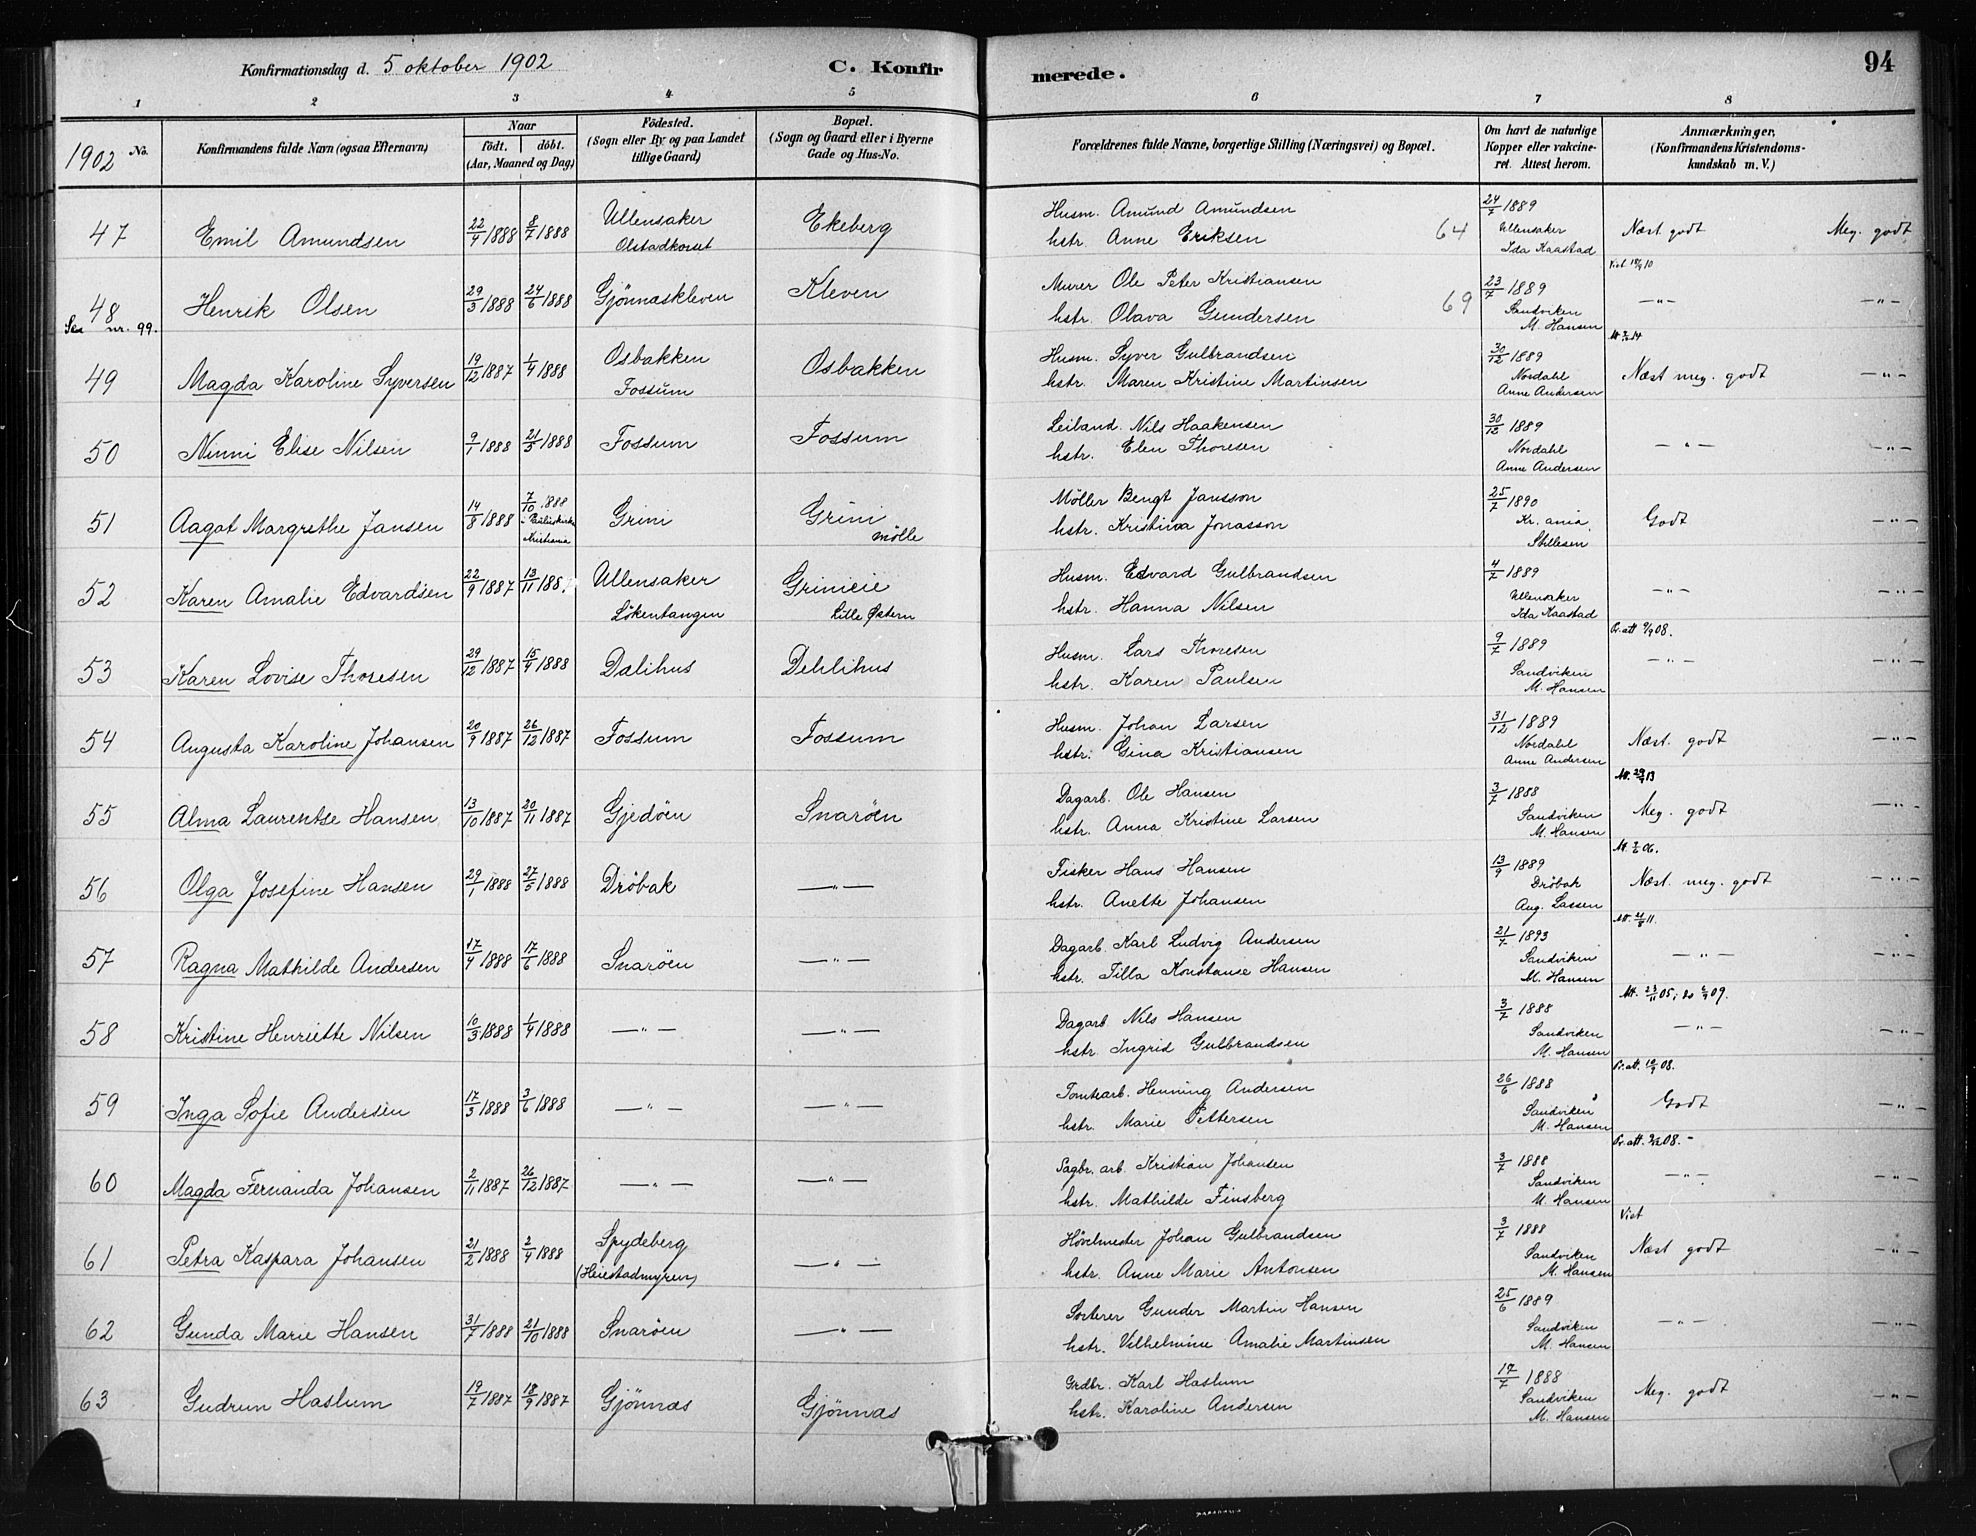 Konfirmationsdag d. 5 oktober 1902
C. Konfirmerede.
94
1 2 3 4 5 6 7 8
1902 No.
Konfirmandens fulde Navn (ogsaa Efternavn)
Naar
födt. döbt.
(Aar, Maaned og Dag)
Födested.
(Sogn eller By og paa Landet
tillige Gaard)
Bopæl.
(Sogn og Gaard eller i Byerne
Gade og Hus-No.
Forældrenes fulde Navne, borgerlige Stilling (Næringsvei) og Bopæl.
Om havt de naturlige
Kopper eller vakcine-
ret. Attest herom.
Anmærkninger,
(Konfirmandens Kristendoms-
kundskab m. V.)
47 Emil Amundsen 22/4 1888 8/7 1888 Ullensaker Olstadkorset Ekeberg
Husm. Amund Amundsen
hstr. Anne Eriksen 64
24/7 1889 Ullensaker Ida Kaastad
Næst. godt Meg. godt
48 Henrik Olsen 29/3 1888 24/6 1888 Gjönnaskleven Kleven
Se nr. 99.
Murer Ole Peter Kristiansen
hstr. Olava Gundersen 69
23/7 1889 Sandviken M. Hansen
—"— —"—
49 Magda Karoline Syversen 19/12 1887 1/4 1888 Osbakken Fossum Osbakken
Husm. Syver Gulbrandsen
hstr. Maren Kristine Martinsen
30/12 1889 Nordahl Anne Andersen
Næst meg. godt —"—
50 Ninni Elise Nilsen 9/1 1888 21/5 1888 Fossum Fossum
Leiland. Nils Haakensen
hstr. Elen Thoresen
30/12 1889 Nordahl Anne Andersen
—"— —"—
51 Aagot Margrethe Jansen 14/8 1888 7/10 1888 i Paulus kirke Kristiania Grini Grini mölle
Møller Bengt Jansson
hstr. Kristina Jonasson
25/7 1890 Kr. ania Stillesen
Godt —"—
52 Karen Amalie Edvardsen 22/9 1887 13/11 188. Ullensaker Lökentangen Grinieie Lille Østern
Husm. Edvard Gulbrandsen
hstr. Hanna Nilsen
4/7 1889 Ullensaker Ida Kaastad
—"— —"—
53 Karen Lovise Thoresen 29/12 1887 15/4 1888 Dalihus Dehlihus
Husm. Lars Thoresen
hstr. Karen Paulsen
Pr. att 9/9 08.
9/7 1889 Sandviken M. Hansen
—"— —"—
54 Augusta Karoline Johansen 20/9 1887 26/12 1887 Fossum Fossum
Husm. Johan Larsen
hstr. Gina Kristiansen
31/12 1889 Nordahl Anne Andersen
Næst. godt —"—
55 Alma Laurentse Hansen 13/10 1887 20/11 1887 Gjedöen Snaröen
Dagarb. Ole Hansen
hstr. Anna Kristine Larsen
3/7 1888 Sandviken M. Hansen
Meg. godt —"—
56 Olga Josefine Hansen 29/1 1888 27/5 1888 Dröbak —"—
Fisker Hans Hansen
hstr. Anette Johansen
13/9 1889 Dröbak Aug. Lassen
Næst. meg. godt —"—
57 Ragna Mathilde Andersen 17/4 1888 17/6 1888 Snaröen —"—
Dagarb. Karl Ludvig Andersen
hstr. Tilla Konstanse Hansen
21/7 1893 Sandviken M. Hansen
—"— —"—
58 Kristine Henriette Nilsen 10/3 1888 1/4 1888 —"— —"—
Dagarb. Nils Hansen
hstr. Ingrid Gulbrandsen
3/7 1888 Sandviken M. Hansen
—"— —"—
59 Inga Sofie Andersen 17/3 1888 3/6 1888 —"— —"—
Tomtearb. Henning Andersen
hstr. Marie Pettersen
26/6 1888 Sandviken M. Hansen
Godt —"—
60 Magda Fernanda Johansen 2/11 1887 26/12 1887 —"— —"—
Sagbr. arb. Kristian Johansen
hstr. Mathilde Finsberg
3/7 1888 Sandviken M. Hansen
—"— —"—
61 Petra Kaspara Johansen 21/2 1888 2/4 1888 Spydeberg (Heiestadmyren) —"—
Hövelmester Johan Gulbrandsen
hstr. Anne Marie Antonsen
Vist
3/7 1888 Sandviken M. Hansen
Næst godt —"—
62 Gunda Marie Hansen 31/7 1888 21/10 1888 Snaröen —"—
Sorterer Gunder Martin Hansen
hstr. Vilhelmine Amalie Martinsen
25/6 1889 Sandviken M. Hansen
—"— —"—
63 Gudrun Haslum 19/7 1887 18/9 1887 Gjönnæs Gjönnæs
Grdbr. Karl Haslum
hstr. Karoline Andersen
17/7 1888 Sandviken M. Hansen
Meg. godt —"—